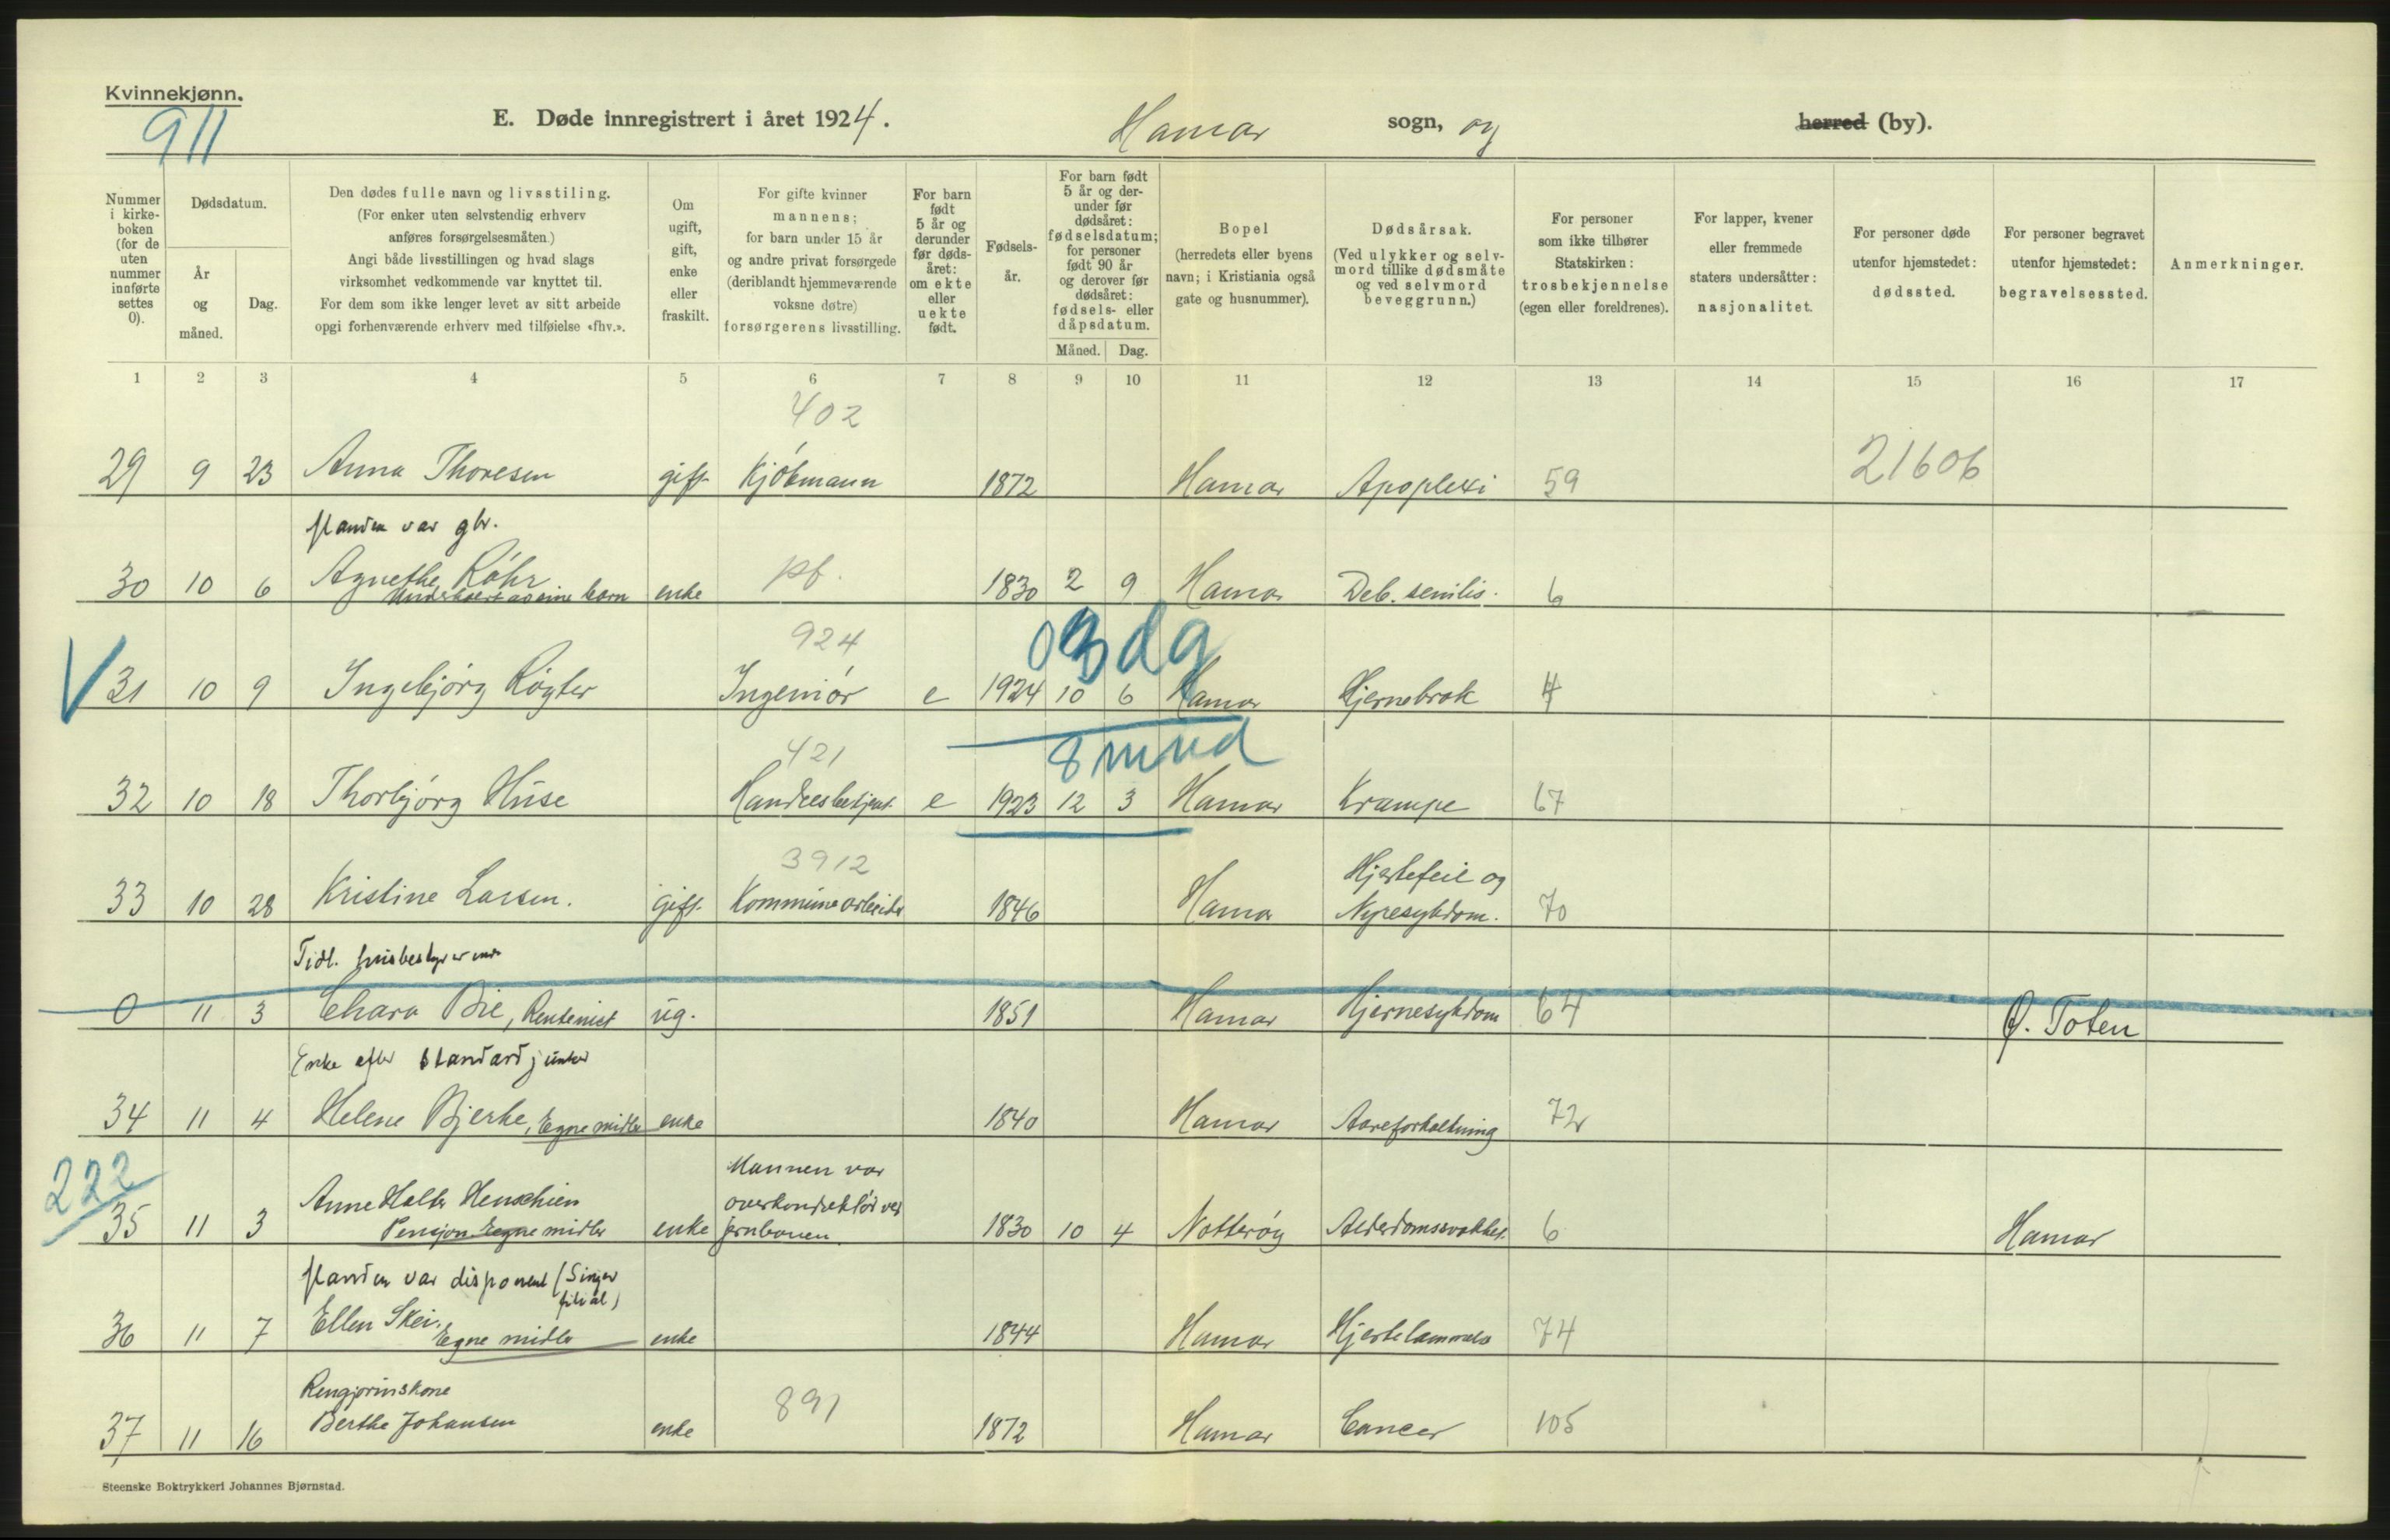 Kvinnekjønn.
911
E. Døde innregistrert i året 1924. Hamar sogn, og herred (by).
Nummer i kirkeboken (for de uten nummer innførte settes 0).
Dødsdatum.
År og måned.
Dag.
Den dødes fulle navn og livsstiling.
(For enker uten selvstendig erhverv
anføres forsørgelsesmåten.)
Angi både livsstillingen og hvad slags
virksomhet vedkommende var knyttet til.
For dem som ikke lenger levet av sitt arbeide
opgi forhenværende erhverv med tilføielse «fhv.».
Om ugift, gift, enke eller fraskilt.
For gifte kvinner
mannens;
for barn under 15 år
og andre privat forsørgede
(deriblandt hjemmeværende
voksne døtre)
forsørgerens livsstilling.
For barn født 5 år og derunder før dødsåret: om ekte eller uekte født.
Fødselsår.
For barn født 5 år og derunder før dødsåret: fødselsdatum; for personer født 90 år og derover før dødsåret: fødsels- eller dåpsdatum.
Måned. Dag.
Bopel
(herredets eller byens
navn; i Kristiania også
gate og husnummer).
Dødsårsak.
(Ved ulykker og selvmord tillike dødsmåte og ved selvmord beveggrunn.)
For personer
som ikke tilhører
Statskirken:
trosbekjennelse
(egen eller foreldrenes).
For lapper, kvener
eller fremmede
staters undersåtter:
nasjonalitet.
For personer døde
utenfor hjemstedet:
dødssted.
For personer begravet
utenfor hjemstedet:
begravelsessted.
Anmerkninger.
1 2 3 4 5 6 7 8 9 10 11 12 13 14 15 16 17
402
29 9 23 Anna Thoresen gift Kjøbmann 1872 Hamar Apoplexi 59 21606
Manden var gbr.
30 10 6 Agnethe Røhr enke pf. 1830 2 9 Hamar Deb. senilis. 6
Underholdt av sine barn
924 03 dg
31 10 9 Ingebjørg Røgter Ingeniør e 1924 10 6 Hamar Hjernebrok 4
421 8 mnd
32 10 18 Thorbjørg Huse Handelsbetjent e 1923 12 3 Hamar Krampe 67
3912
33 10 28 Kristine Larsen. gift. Kommunearbeider 1846 Hamar Hjertefeil og
Nyresykdom. 70
Tidl. husbestyrerinde
0 11 3 Chara Bie, Rentenist ug. 1851 Hamar Hjernesykdom 64 Ø. Toten
Enke efter standardjunker
34 11 4 Helene Bjerke, Egne midler enke 1840 Hamar Aareforkalkning 72
222
35 11 3 Anne Halter Henschien
Pensjon Egne midler enke Mannen var
overkonduktør ved
jernbanen. 1830 10 4 Nøtterøy Alderdomssvakhet. 6 Hamar
Manden var disponent (Singer
filial)
36 11 7 Ellen Skei,
Egne midler enke 1844 Hamar Hjertelammelse 74
Rengjøringskone
37 11 16 Berthe Johansen enke 891 1872 Hamar Cancer 105
Steenske Boktrykkeri Johannes Bjørnstad.